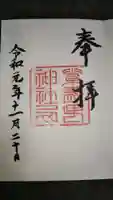 奉拝
令和元年十一月二十日